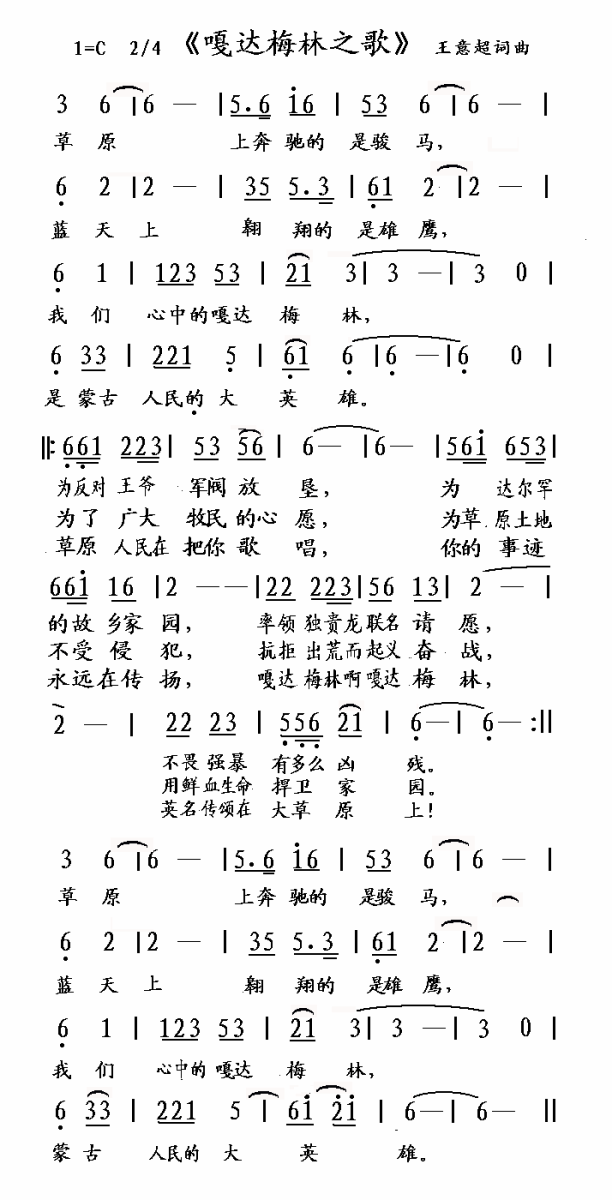 1=C 2/4 《嘎达梅林之歌》 王意超词曲
3 6 | 6 — | 5.6 i6 | 53 6 | 6 — |
草原 上奔驰的是骏马,
6 2 | 2 — | 35 5.3 | 61 2 | 2 — |
蓝天上 翱翔的是雄鹰,
6 1 | 123 53 | 21 3 | 3 — | 3 0 |
我们 心中的嘎达梅林,
6 33 | 221 5 | 61 6 | 6 — | 6 0 |
是蒙古 人民的大英雄。
‖: 661 223 | 53 56 | 6 — | 6 — | 56i 653 |
为反对王爷 军阀放垦, 为达尔罕
为了广大 牧民的心愿, 为草原土地
草原人民在 把你歌唱, 你的事迹
66i 16 | 2 — — | 22 223 | 56 13 | 2 — |
的故乡家园, 率领独贵龙联名请愿,
不受侵犯, 抗拒出荒而起义奋战,
永远在传扬, 嘎达梅林啊嘎达梅林,
2 — | 22 23 | 556 21 | 6 — | 6 — :‖
不畏强暴 有多么凶残。
用鲜血生命 捍卫家园。
英名传颂在 大草原上!
3 6 | 6 — | 5.6 i6 | 53 6 | 6 — |
草原 上奔驰的是骏马,
6 2 | 2 — | 35 5.3 | 61 2 | 2 — |
蓝天上 翱翔的是雄鹰,
6 1 | 123 53 | 21 3 | 3 — | 3 0 |
我们 心中的嘎达梅林,
6 33 | 221 5 | 6i 2i | 6 — | 6 — ‖
蒙古 人民的大英雄。